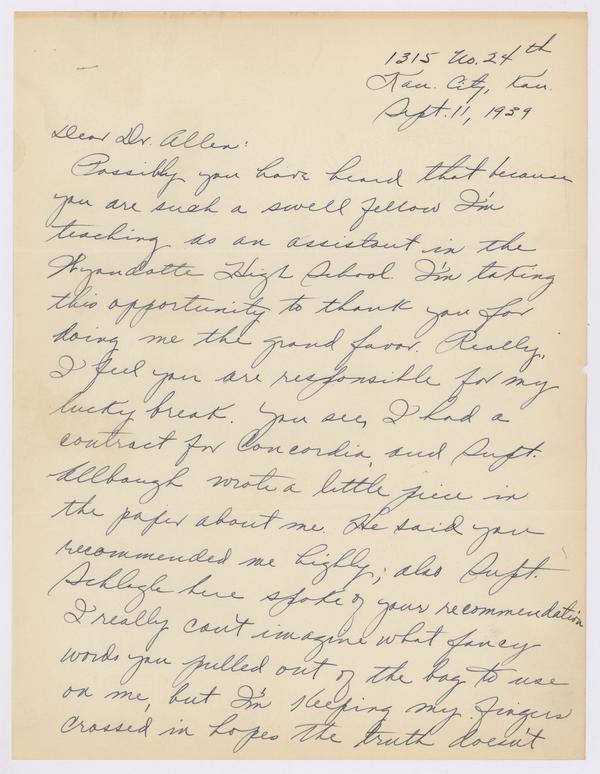 1315 No. 24th
Kan. City, Kan.
Sept. 11, 1939
Dear Dr. Allen:
Possibly you have heard that because
you are such a swell fellow I'm
teaching as an assistant in the
Wyandotte High School. I'm taking
this opportunity to thank you for
doing me the grand favor. Really,
I feel you are responsible for my
lucky break. You see, I had a
contract for Concordia, and Supt.
Allbaugh wrote a little piece in
the paper about me. He said you
recommended me highly; also Supt.
Schlagle here spoke of your recommendation
I really can't imagine what fancy
words you pulled out of the bag to use
on me, but I'm keeping my fingers
crossed in hopes the truth doesn't